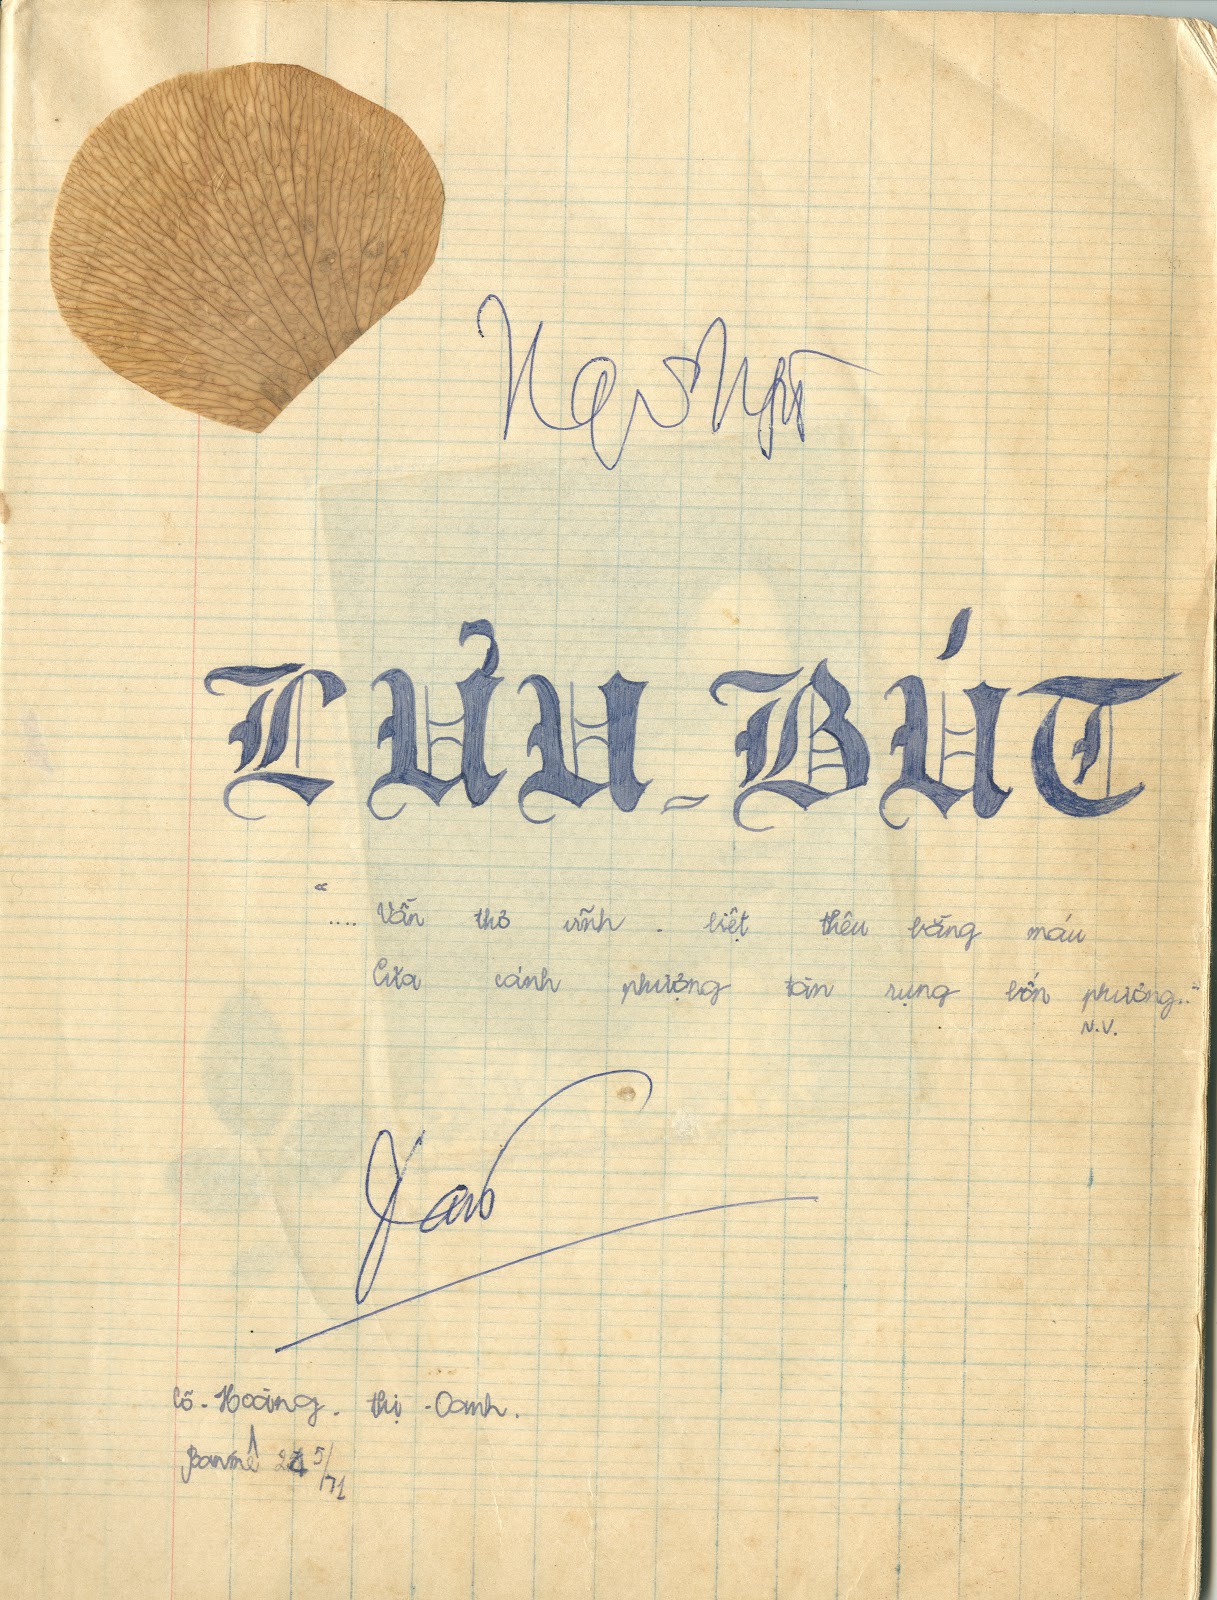 LƯU-BÚT
"
.... Vần thơ vĩnh - biệt thêu bằng máu
Của cánh phượng tàn rụng bốn phương.."
N.V.
Cô - Hoàng - thị - Oanh.
Banmê 24 5/71